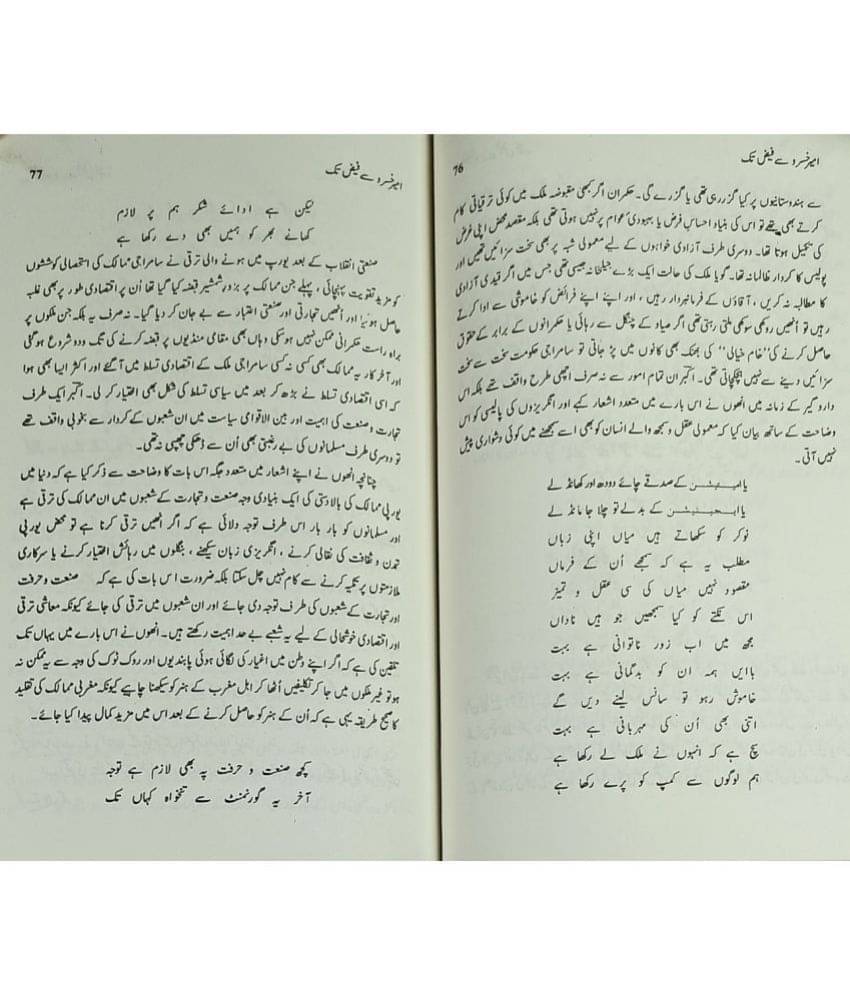 امیر خسرو سے فیض تک
76
سے ہندوستانیوں پر کیا گزر رہی تھی یا گزرے گی۔ حکمران اگر کبھی مقبوضہ ملک میں کوئی ترقیاتی کام
کرتے بھی تھے تو اس کی بنیاد احساسِ فرض یا بہبودیِ عوام پر نہیں ہوتی تھی بلکہ مقصد محض اپنی غرض
کی تکمیل ہوتا تھا۔ دوسری طرف آزادی خواہوں کے لیے معمولی شبہ پر بھی سخت سزائیں تھیں اور
پولیس کا کردار ظالمانہ تھا۔ گویا ملک کی حالت ایک بڑے جیلخانہ جیسی تھی جس میں اگر قیدی آزادی
کا مطالبہ نہ کریں، آقاؤں کے فرمانبردار رہیں، اور اپنے اپنے فرائض کو خاموشی سے ادا کرتے
رہیں تو انھیں روکھی سوکھی ملتی رہتی تھی اگر صیاد کے چنگل سے رہائی یا حکمرانوں کے برابر کے حقوق
حاصل کرنے کی ”خام خیالی“ کی بھنک بھی کانوں میں پڑ جاتی تو سامراجی حکومت سخت سے سخت
سزائیں دینے سے نہیں ہچکچاتی تھی۔ اکبر ان تمام امور سے نہ صرف اچھی طرح واقف تھے بلکہ اس
دار و گیر کے زمانہ میں انھوں نے اس بارے میں متعدد اشعار کہے اور انگریزوں کی پالیسی کو اس
وضاحت کے ساتھ بیان کیا کہ معمولی عقل و سمجھ والے انسان کو بھی اسے سمجھنے میں کوئی دشواری پیش
نہیں آتی۔
کے صدقے چائے دودھ اور کھانڈ لے
یا ایجیٹیشن کے بدلے تو چلا جا مانڈلے
نوکر کو سکھاتے ہیں میاں اپنی زباں
مطلب یہ ہے کہ سمجھے اُن کے فرماں
مقصود نہیں میاں کی سی عقل و تمیز
اس نکتے کو کیا سمجھیں جو ہیں ناداں
مجھ میں اب زورِ ناتوانی ہے بہت
باایں ہمہ ان کو بدگمانی ہے بہت
خاموش رہو تو سانس لینے دیں گے
اتنی بھی اُن کی مہربانی ہے بہت
سچ ہے کہ انہوں نے ملک لے رکھا ہے
ہم لوگوں سے کمپ کو پرے رکھا ہے
امیر خسرو سے فیض تک
77
لیکن ہے ادائے شکر ہم پر لازم
کھانے بھر کو ہمیں بھی دے رکھا ہے
صنعتی انقلاب کے بعد یورپ میں ہونے والی ترقی نے سامراجی ممالک کی استحصالی کوششوں
کو مزید تقویت پہنچائی، پہلے جن ممالک پر بزورِ شمشیر قبضہ کیا گیا تھا اُن پر اقتصادی طور پر بھی غلبہ
حاصل ہو گیا اور انھیں تجارتی اور صنعتی اعتبار سے بے جان کر دیا گیا۔ نہ صرف یہ بلکہ جن ملکوں پر
براہِ راست حکمرانی ممکن نہیں ہو سکی وہاں بھی مقامی منڈیوں پر قبضہ کرنے کی تگ و دو شروع ہو گئی
اور آخر کار یہ ممالک بھی کسی نہ کسی سامراجی ملک کے اقتصادی تسلط میں آ گئے اور اکثر ایسا بھی ہوا
کہ اسی اقتصادی تسلط نے بڑھ کر بعد میں سیاسی تسلط کی شکل بھی اختیار کر لی۔ اکبر ایک طرف
تجارت و صنعت کی اہمیت اور بین الاقوامی سیاست میں ان شعبوں کے کردار سے بخوبی واقف تھے
تو دوسری طرف مسلمانوں کی بے رغبتی بھی اُن سے ڈھکی چھپی نہ تھی۔
چنانچہ انھوں نے اپنے اشعار میں متعدد جگہ اس بات کا وضاحت سے ذکر کیا ہے کہ دنیا میں
یورپی ممالک کی بالادستی کی ایک بنیادی وجہ صنعت و تجارت کے شعبوں میں ان ممالک کی ترقی ہے
اور مسلمانوں کو بار بار اس طرف توجہ دلائی ہے کہ اگر انھیں ترقی کرنا ہے تو محض یورپی
تمدن و ثقافت کی نقالی کرنے، انگریزی زبان سیکھنے، بنگلوں میں رہائش اختیار کرنے یا سرکاری
ملازمتوں پر تکیہ کرنے سے کام نہیں چل سکتا بلکہ ضرورت اس بات کی ہے کہ صنعت و حرفت
اور تجارت کے شعبوں کی طرف توجہ دی جائے اور ان شعبوں میں ترقی کی جائے کیونکہ معاشی ترقی
اور اقتصادی خوشحالی کے لیے یہ شعبے بے حد اہمیت رکھتے ہیں۔ انھوں نے اس بارے میں یہاں تک
تلقین کی ہے کہ اگر اپنے وطن میں اغیار کی لگائی ہوئی پابندیوں اور روک ٹوک کی وجہ سے یہ ممکن نہ
ہو تو غیر ملکوں میں جا کر تکلیفیں اُٹھا کر اہلِ مغرب کے ہنر کو سیکھنا چاہیے کیونکہ مغربی ممالک کی تقلید
کا صحیح طریقہ یہی ہے کہ اُن کے ہنر کو حاصل کرنے کے بعد اس میں مزید کمال پیدا کیا جائے۔
کچھ صنعت و حرفت پہ بھی لازم ہے توجہ
آخر یہ گورنمنٹ سے تنخواہ کہاں تک